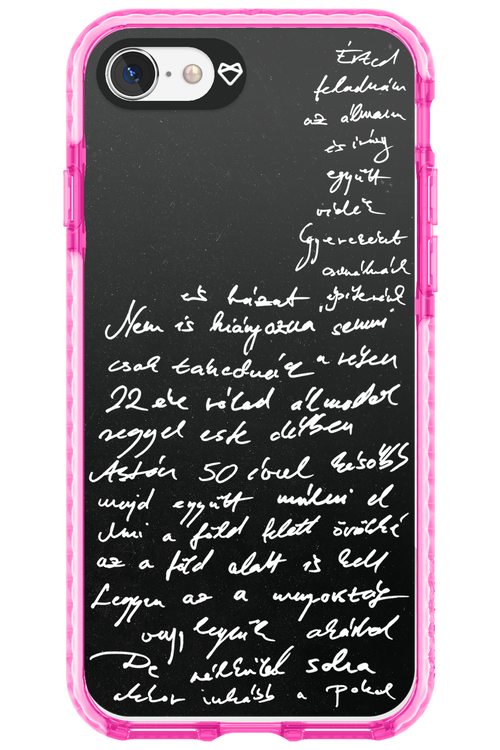 Érted
feladnám
az álmaim
és irány
együtt
vidék
Gyerekeket
csinálnánk
és házat építenénk
Nem is hiányozna semmi
csak takednánk a réten
22 éve rólad álmodok
reggel este délben
Aztán 50 évvel később
majd együtt múlni el
Ami a föld felett örökké
az a föld alatt is kell
Legyen az a mennyország
vagy legyünk akárhol
De nélküled soha
akkor inkább a pokol